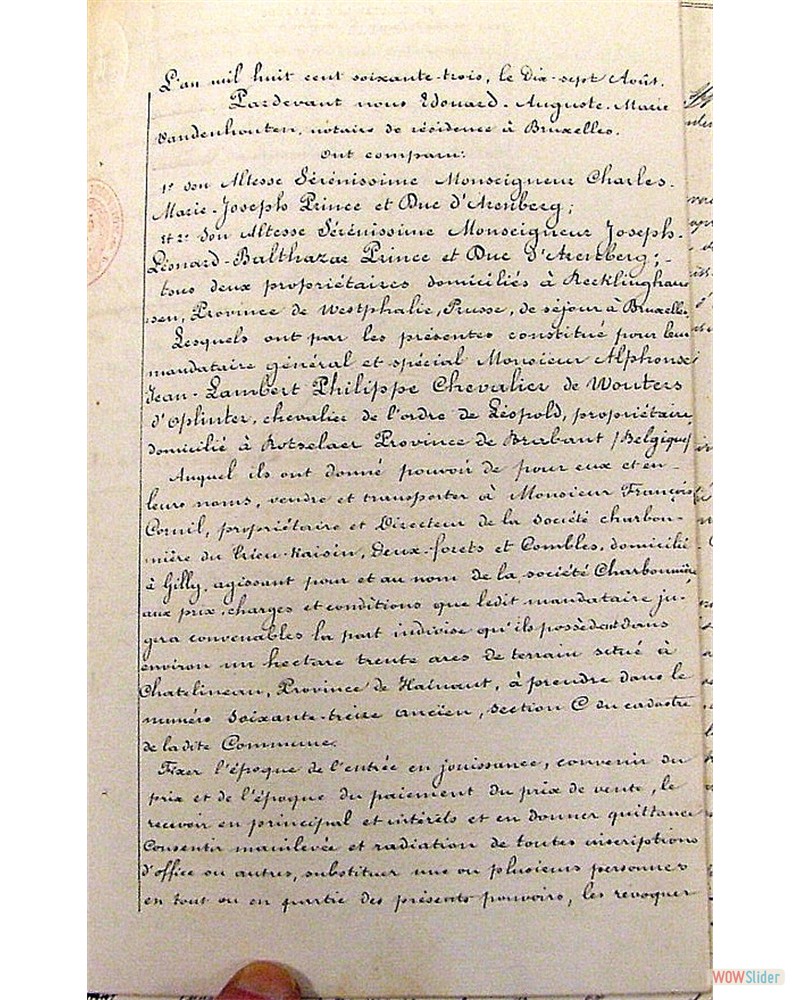 L'an mil huit cent soixante-trois, le Dix-sept Août.
Pardevant nous Edouard-Auguste-Marie
Vandenhouten, notaire de résidence à Bruxelles.
Ont comparu:
1º Son Altesse Sérénissime Monseigneur Charles-
Marie-Joseph Prince et Duc d'Arenberg;
et 2º Son Altesse Sérénissime Monseigneur Joseph-
Léonard-Balthazar Prince et Duc d'Arenberg;-
tous deux propriétaires domiciliés à Recklinghau-
sen, Province de Westphalie, Prusse, de séjour à Bruxelles.
Lesquels ont par les présentes constitué pour leur
mandataire général et spécial Monsieur Alphonse
Jean-Lambert Philippe Chevalier de Wouters
d'Oplinter, chevalier de l'ordre de Léopold, propriétaire,
domicilié à Rotselaer Province de Brabant /Belgique/
Auquel ils ont donné pouvoir de pour eux et en-
leurs noms, vendre et transporter à Monsieur François
Cornil, propriétaire et Directeur de la Société charbon-
nière du Trieu-Kaisin, Deux-forêts et Combles, domicilié
à Gilly, agissant pour et au nom de la société Charbonnière
aux prix, charges et conditions que ledit mandataire ju-
gera convenables la part indivise qu'ils possèdent dans
environ un hectare trente ares de terrain situé à
Chatelineau, Province de Hainaut, à prendre dans le
numéro soixante-treize ancien, section C du cadastre
de la dite Commune.
Fixer l'époque de l'entrée en jouissance, convenir du
prix et de l'époque du paiement du prix de vente, le
recevoir en principal et intérêts et en donner quittance
Consentir mainlevée et radiation de toutes inscriptions
d'office ou autres, substituer une ou plusieurs personnes
en tout ou en partie des présents pouvoirs, les révoquer
WOWSlider